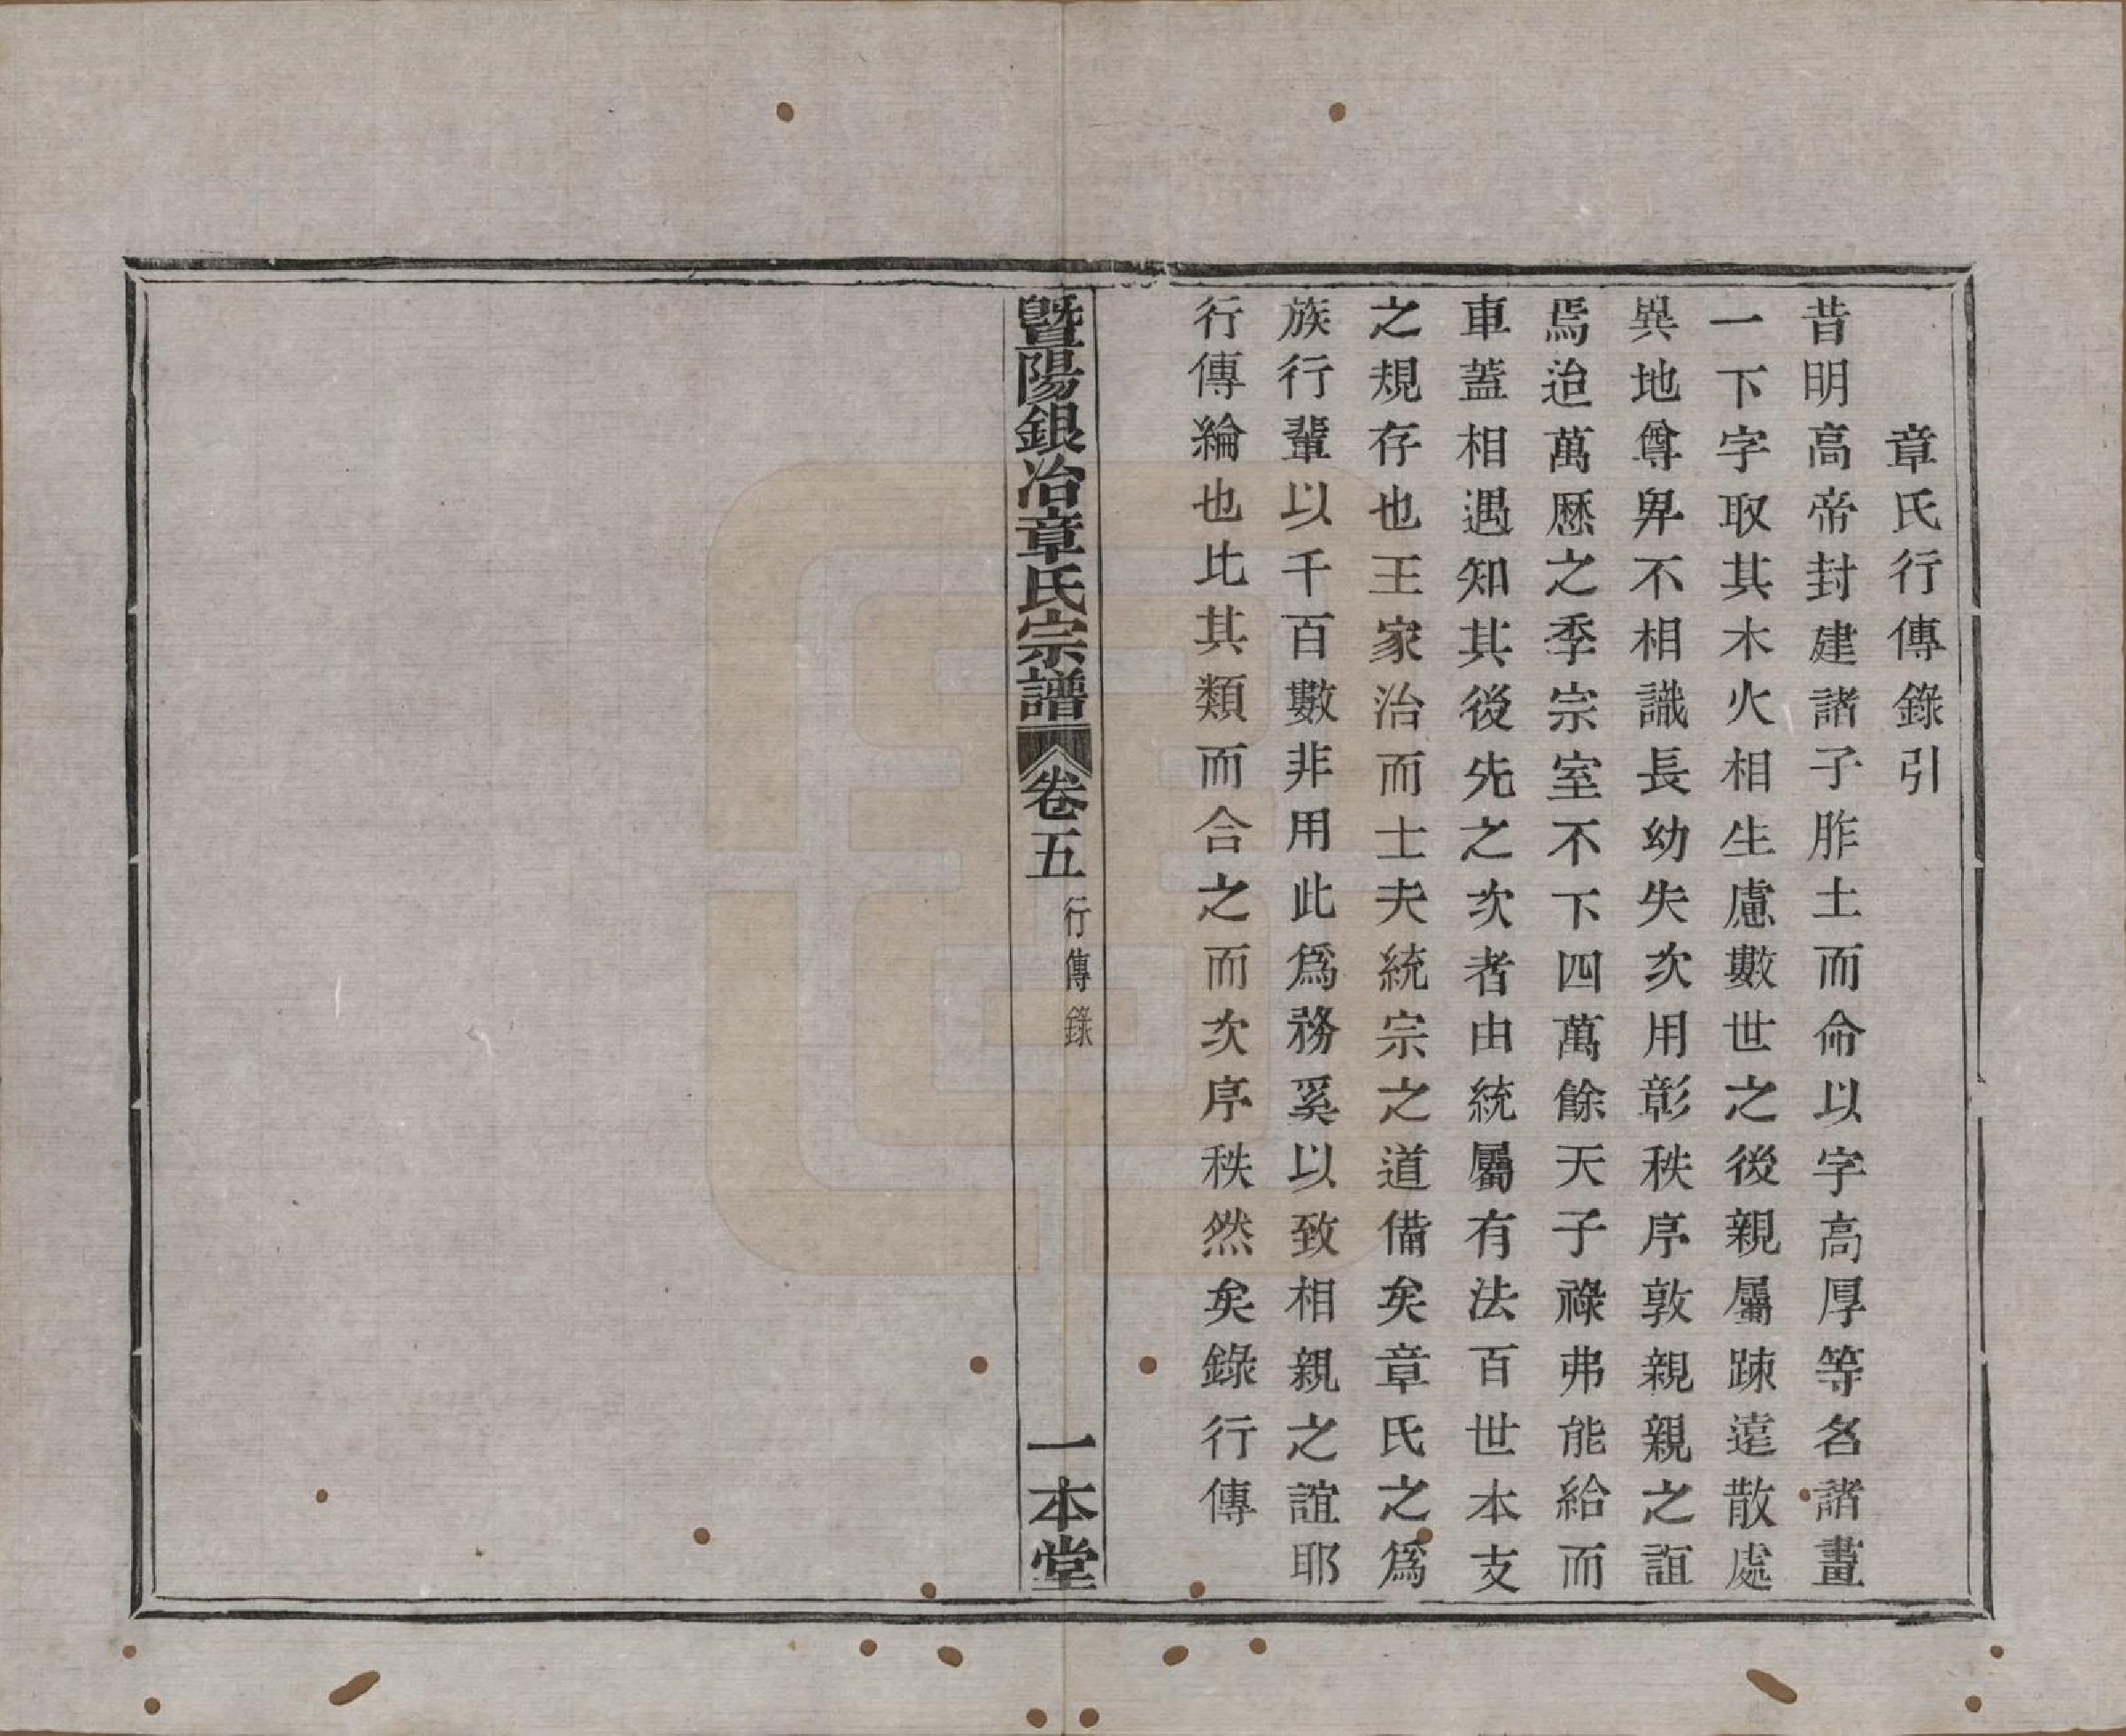 章氏行傳錄引
昔明高帝封建諸子胙土而命以字高厚等名諸畫
一下字取其木火相生慮數世之後親屬踈遠散處
異地尊卑不相識長幼失次用彰秩序敦親親之誼
焉迨萬厯之季宗室不下四萬餘天子祿弗能給而
車蓋相遇知其後先之次者由統屬有法百世本支
之規存也王家治而士夫統宗之道備矣章氏之爲
族行輩以千百數非用此爲務奚以致相親之誼耶
行傳綸也比其類而合之而次序秩然矣錄行傳
暨陽銀冶章氏宗譜 卷五 行傳錄 一本堂